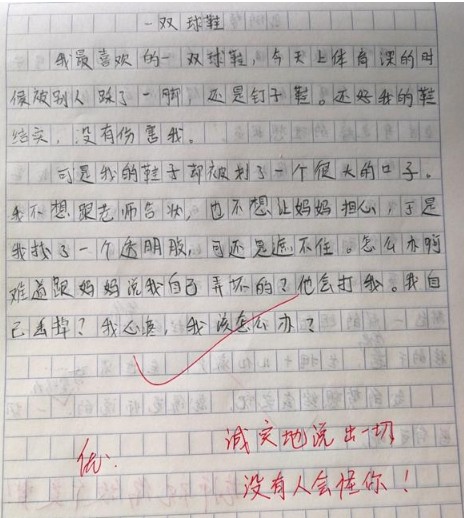 一双球鞋
我最喜欢的一双球鞋，今天上体育课的时
候被别人踩了一脚，还是钉子鞋。还好我的鞋
结实，没有伤害我。
可是我的鞋子却被划了一个很大的口子。
我不想跟老师告状，也不想让妈妈担心，于是
我找了一个透明胶，可还是遮不住。怎么办啊
难道跟妈妈说我自己弄坏的？他会打我。我自
己丢掉？我心疼，我该怎么办？
优.
诚实地说出一切
没有人会怪你！